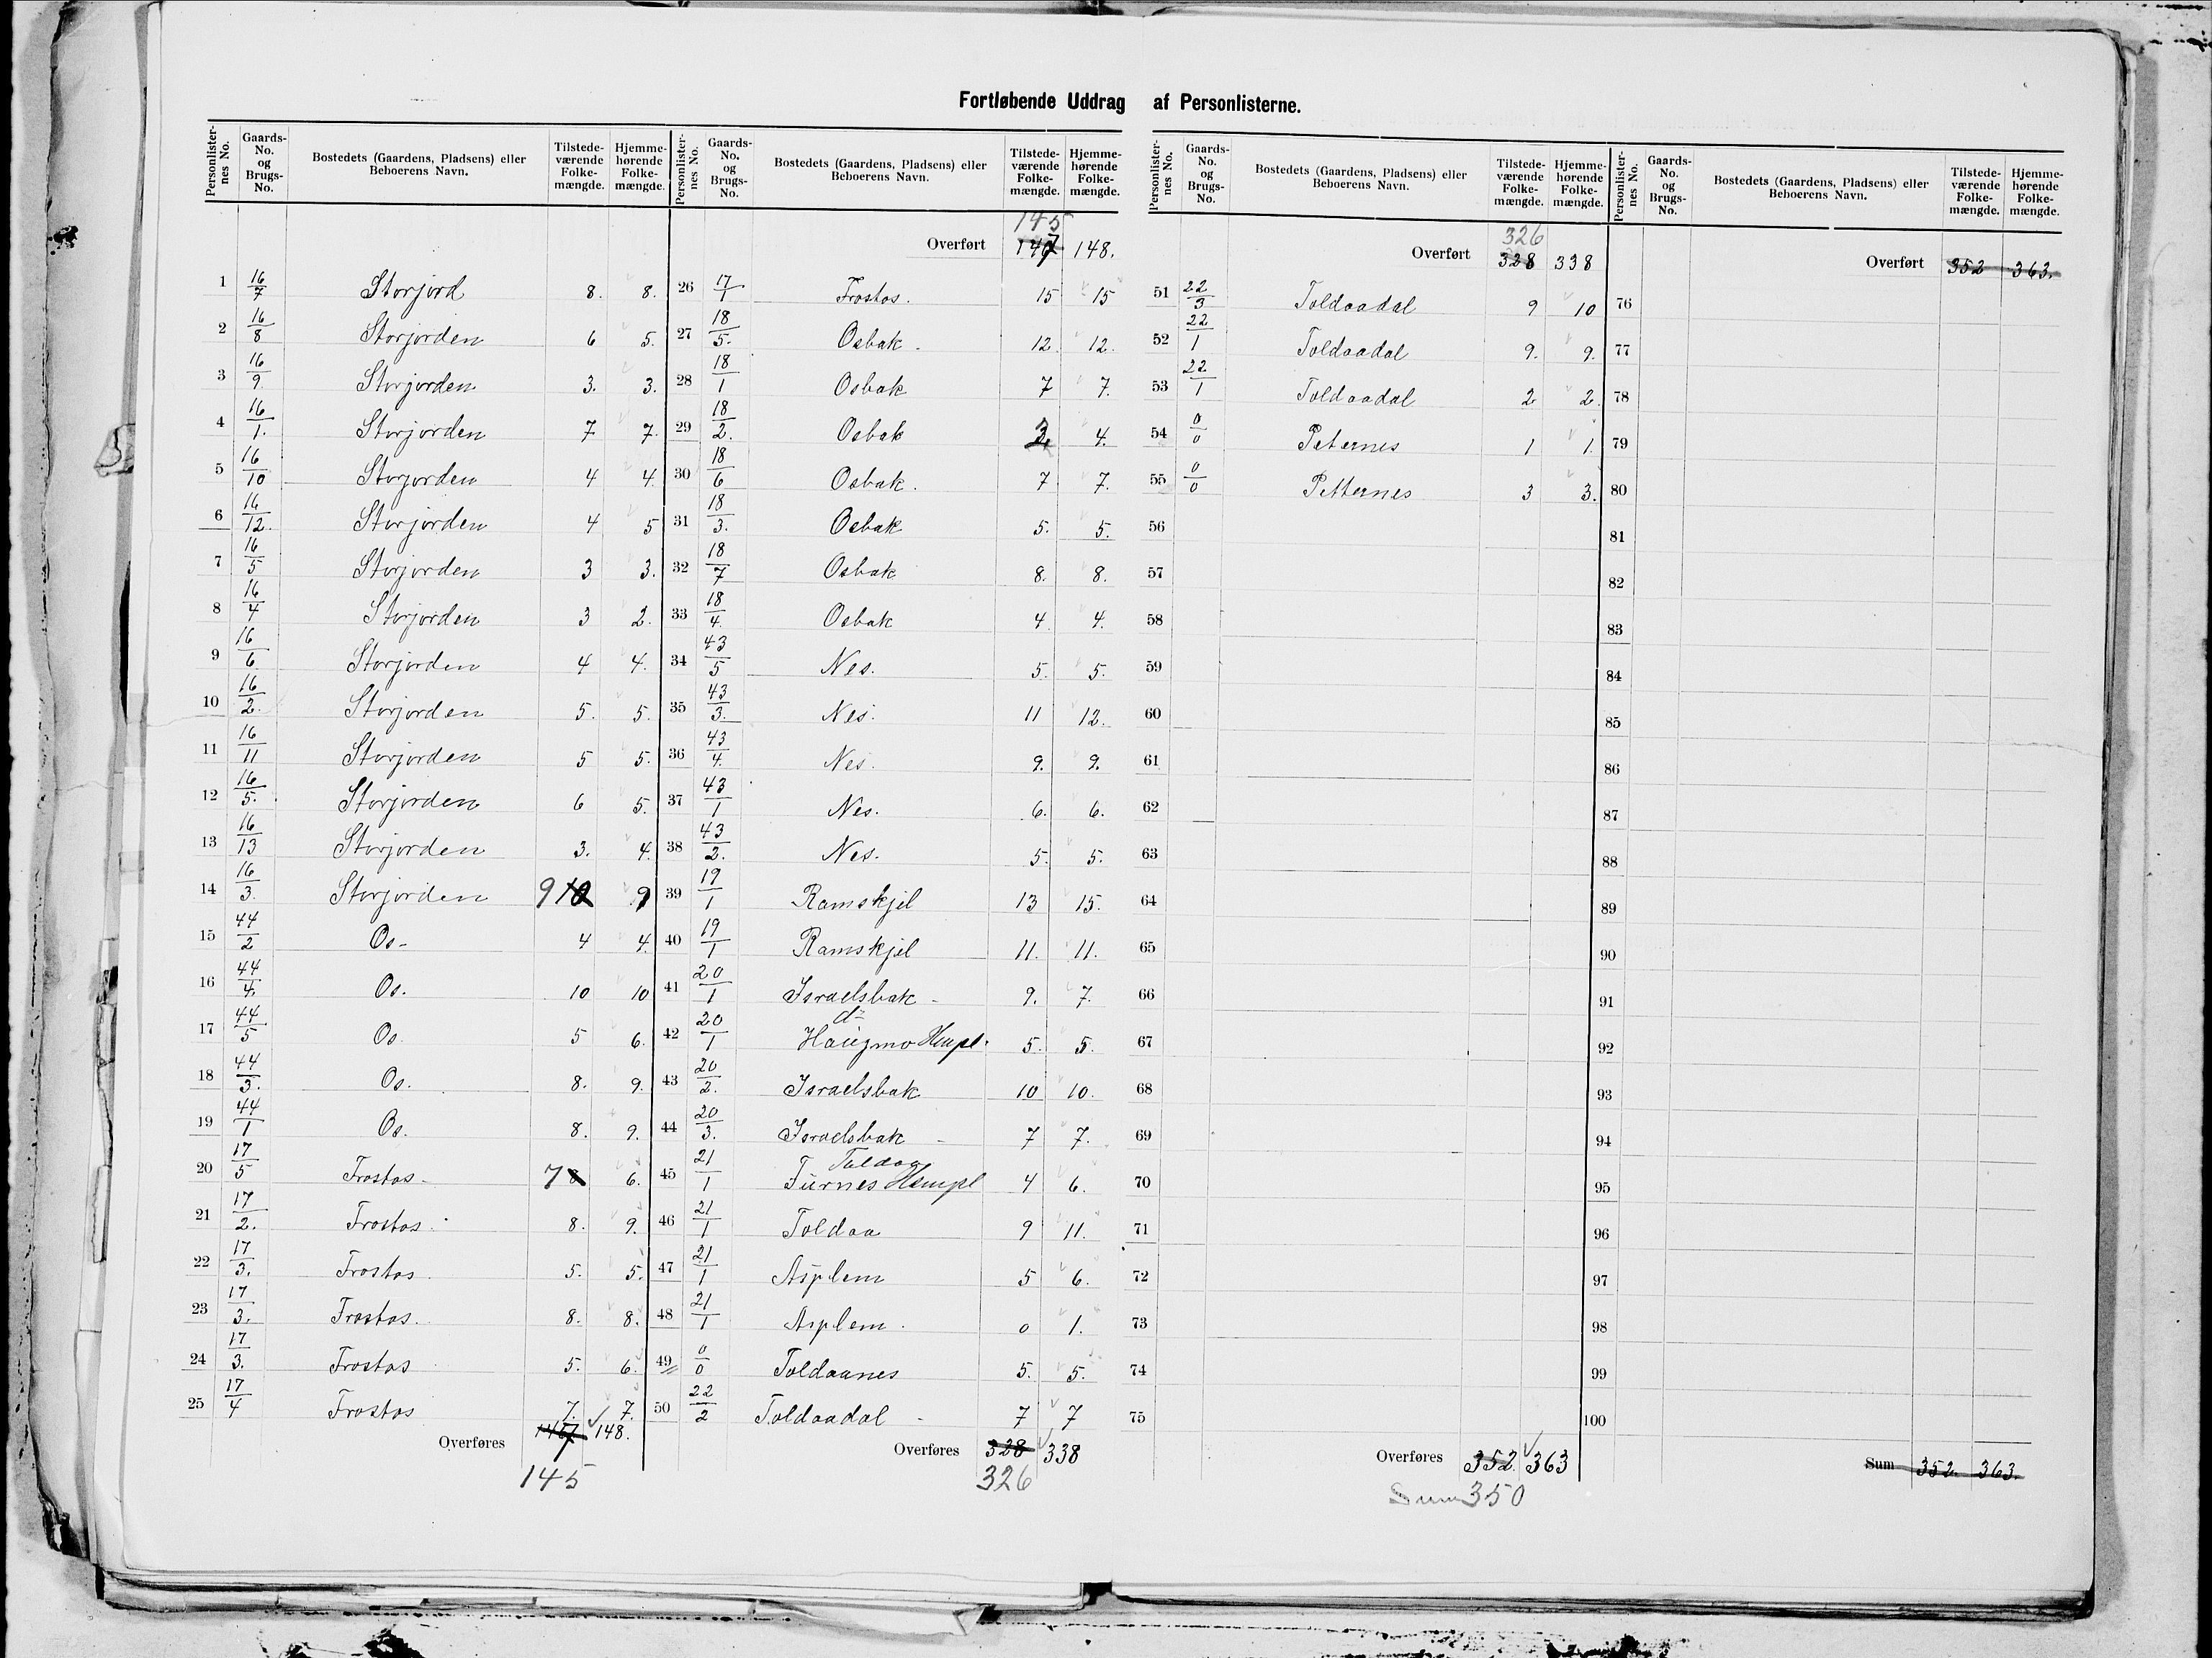 Fortløbende Uddrag af Personlisterne.
Personlister-nes No. | Gaards-No. og Brugs-No. | Bostedets (Gaardens, Pladsens) eller Beboerens Navn. | Tilstede-værende Folke-mængde. | Hjemme-hørende Folke-mængde.
1 16/7 Storjord 8. 8.
2 16/8 Storjorden 6 5.
3 16/9 Storjorden 3. 3.
4 16/1. Storjorden 7 7.
5 16/10 Storjorden 4 4.
6 16/12. Storjorden 4 5
7 16/5 Storjorden 3 3.
8 16/4 Storjorden 3 2.
9 16/6 Storjorden 4 4.
10 16/2. Storjorden 5. 5.
11 16/11 Storjorden 5 5.
12 16/5. Storjorden 6 5.
13 16/13 Storjorden 3. 4.
14 16/3. Storjorden 9 10 9
15 44/2 Os- 4 4.
16 44/4. Os. 10 10
17 44/5 Os 5 6.
18 44/3. Os. 8. 9.
19 44/1 Os. 8. 9.
20 17/5 Frostos- 7 8 6.
21 17/2. Frostos. 8. 9.
22 17/3. Frostos. 5. 5.
23 17/3. Frostos. 8. 8.
24 17/3. Frostos 5. 6.
25 17/4 Frostos 7. 7.
Overføres 147 148.
145
Personlister-nes No. | Gaards-No. og Brugs-No. | Bostedets (Gaardens, Pladsens) eller Beboerens Navn. | Tilstede-værende Folke-mængde. | Hjemme-hørende Folke-mængde.
145
Overført 147 148.
26 17/1 Frostos. 15 15
27 18/5. Osbak. 12. 12.
28 18/1 Osbak 7 7.
29 18/2. Osbak 3 4.
30 18/6 Osbak. 7 7.
31 18/3. Osbak 5. 5.
32 18/7 Osbak 8. 8.
33 18/4. Osbak 4 4.
34 43/5 Nes. 5. 5.
35 43/3. Nes. 11 12.
36 43/4. Nes. 9. 9.
37 43/1 Nes. 6. 6.
38 43/2. Nes. 5. 5.
39 19/1 Ramskjel 13 15.
40 19/1 Ramskjel 11. 11.
41 20/1 Israelsbak - 9. 7.
do
42 20/1 Haugmo Hmpl. 5. 5.
43 20/2. Israelsbak 10 10.
44 20/3. Israelsbak - 7 7.
Toldaa
45 21/1 Furnes Hempl 4 6.
46 21/1 Toldaa 9 11.
47 21/1 Asplem 5 6.
48 21/1 Asplem. 0 1.
49 0/0 Toldaanes 5. 5.
50 22/2 Toldaadal - 7 7
Overføres 328 338
326
Personlister-nes No. | Gaards-No. og Brugs-No. | Bostedets (Gaardens, Pladsens) eller Beboerens Navn. | Tilstede-værende Folke-mængde. | Hjemme-hørende Folke-mængde.
326
Overført 328 338
51 22/3 Toldaadal 9 10
52 22/1 Toldaadal 9. 9.
53 22/1 Toldaadal 2. 2.
54 0/0 Peternes 1 1.
55 0/0 Petternes 3 3.
56
57
58
59
60
61
62
63
64
65
66
67
68
69
70
71
72
73
74
75
Overføres 352. 363
Sum 350
Personlister-nes No. | Gaards-No. og Brugs-No. | Bostedets (Gaardens, Pladsens) eller Beboerens Navn. | Tilstede-værende Folke-mængde. | Hjemme-hørende Folke-mængde.
Overført 352 363.
76
77
78
79
80
81
82
83
84
85
86
87
88
89
90
91
92
93
94
95
96
97
98
99
100
Sum 352. 363.